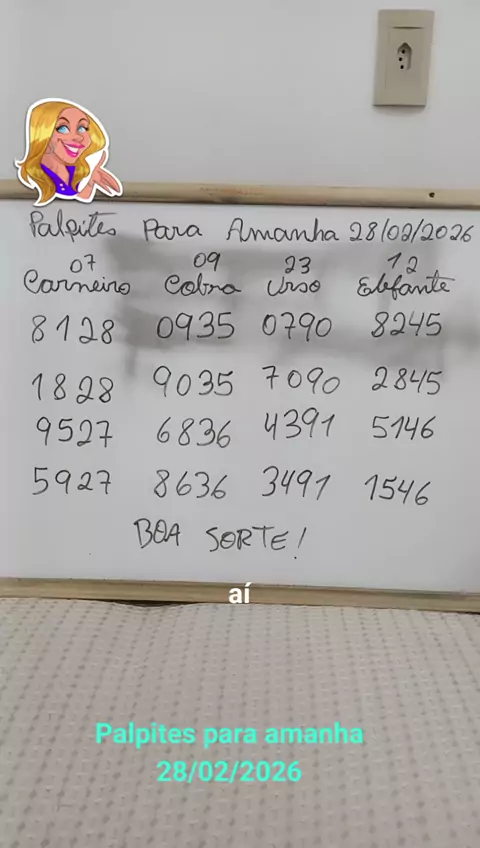 Palpites Para Amanha 28/02/2026
07 09 23 12
Carneiro Cobra Urso Elefante
8128 0935 0790 8245
1828 9035 7090 2845
9527 6836 4391 5146
5927 8636 3491 1546
BOA SORTE!
aí
Palpites para amanha
28/02/2026